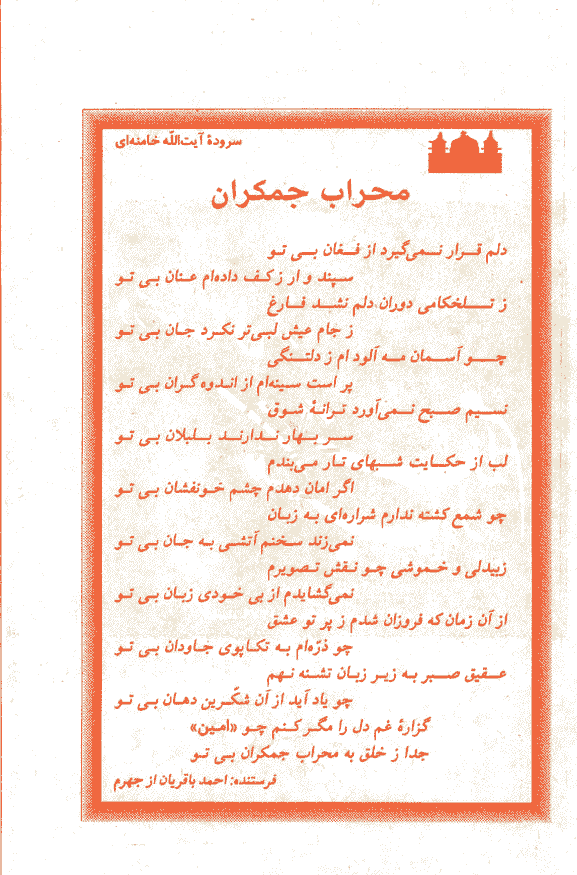 سرودۀ آیت‌اللّه خامنه‌ای
محراب جمکران
دلم قرار نمی‌گیرد از فغان بی تو
سپند و ار ز کف داده‌ام عنان بی تو
ز تلخکامی دوران دلم نشد فارغ
ز جام عیش لبی‌تر نکرد جان بی تو
چو آسمان مه آلود ام ز دلتنگی
پر است سینه‌ام از اندوه گران بی تو
نسیم صبح نمی‌آورد ترانۀ شوق
سر بهار ندارند بلبلان بی تو
لب از حکایت شبهای تار می‌بندم
اگر امان دهدم چشم خونفشان بی تو
چو شمع کشته ندارم شراره‌ای به زبان
نمی‌زند سخنم آتشی به جان بی تو
زبیدلی و خموشی چو نقش تصویرم
نمی‌گشایدم از بی خودی زبان بی تو
از آن زمان که فروزان شدم ز پر تو عشق
چو ذرّه‌ام به تکاپوی جاودان بی تو
عقیق صبر به زیر زبان تشنه نهم
چو یاد آید از آن شکّرین دهان بی تو
گزارۀ غم دل را مگر کنم چو «امین»
جدا ز خلق به محراب جمکران بی تو
فرستنده: احمد باقریان از جهرم